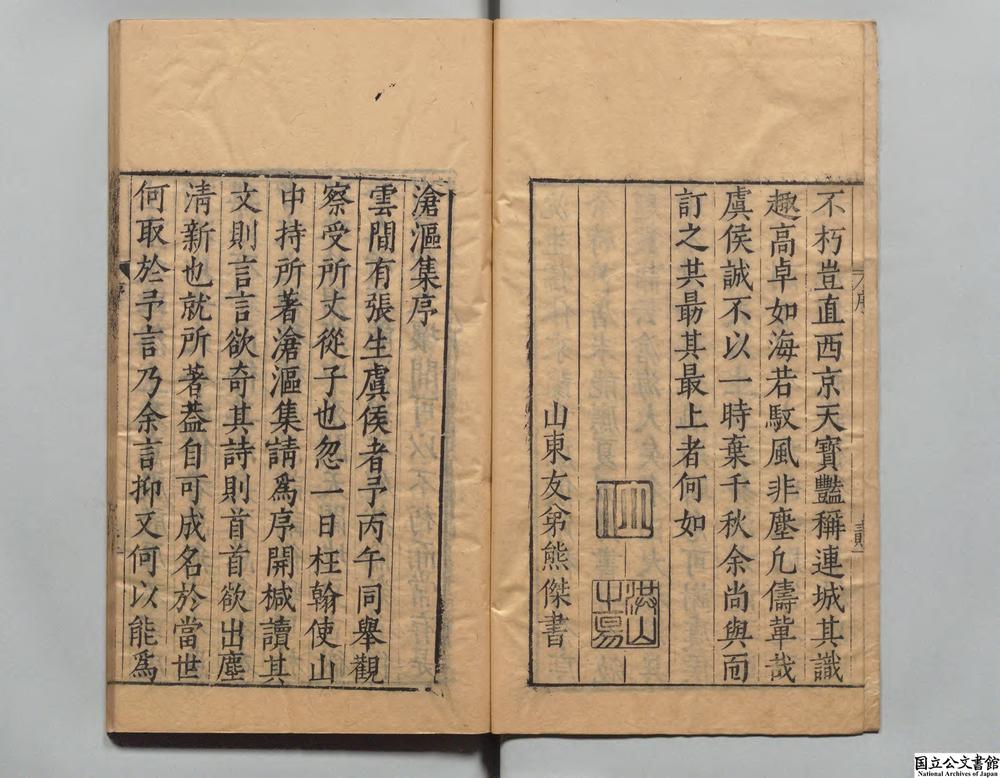 不朽豈直西京天寶豔稱連城其識
趣高卓如海若馭風非塵凢儔軰哉
虞侯誠不以一時棄千秋余尚與而
訂之其最其最上者何如
山東友弟熊傑書
洪山
滄漚集序
雲間有張生虞侯者予丙午同舉觀
察受所丈從子也忽一日枉翰使山
中持所著滄漚集請爲序開椷讀其
文則言言欲奇其詩則首首欲出塵
清新也就所著葢自可成名於當世
何取於予言乃余言抑又何以能爲
国立公文書館
National Archives of Japan